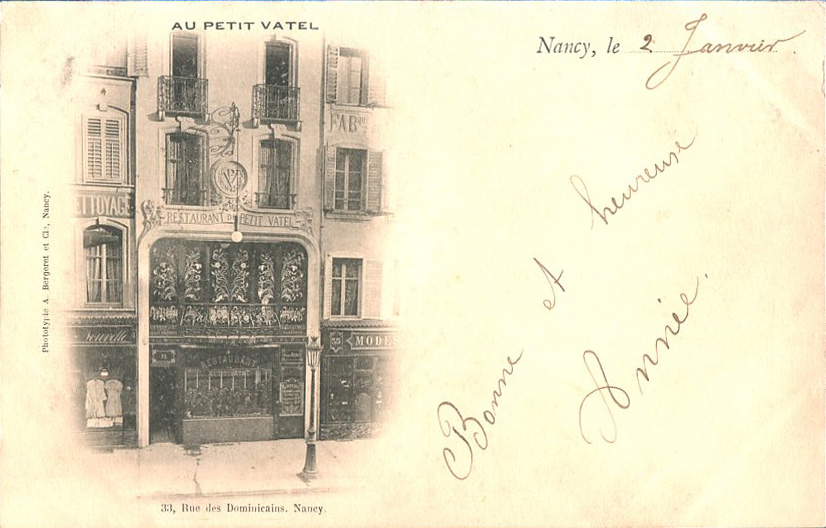 AU PETIT VATEL
Nancy, le 2 Janvier.
FAB
ETTOYAGE
RESTAURANT DU PETIT VATEL
RESTAURANT
MODES
Bonne et heureuse
Année.
Phototypie A. Bergeret et Cie, Nancy.
33, Rue des Dominicains. Nancy.